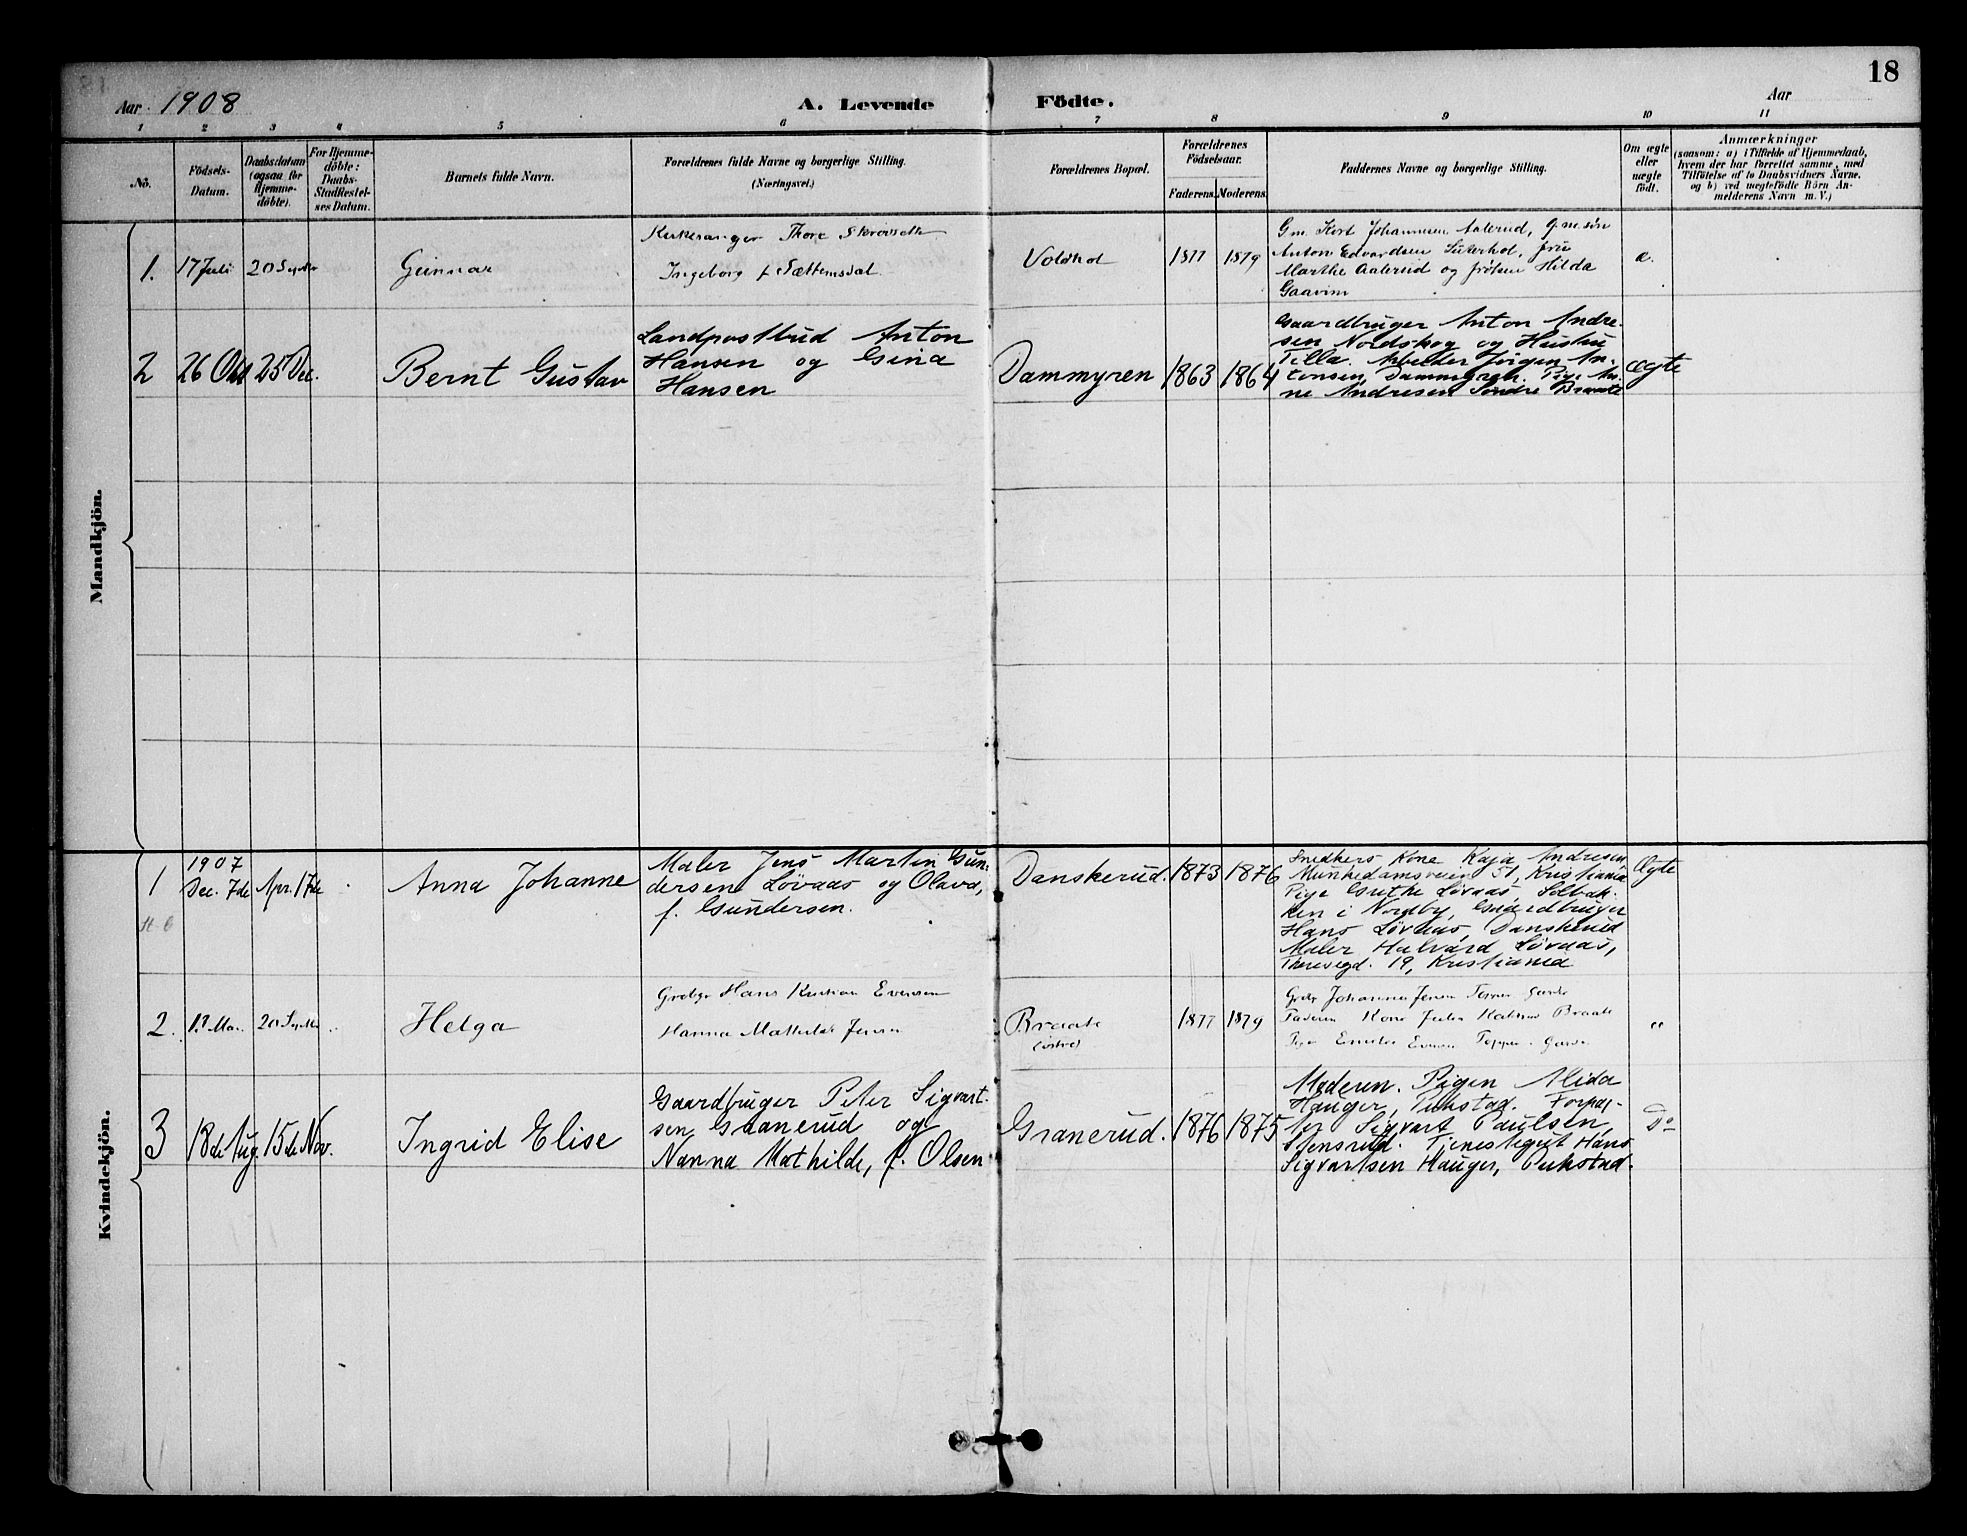 18
Aar 1908
A. Levende Födte.
Aar
1 2 3 4 5 6 7 8 9 10 11
No.
Födsels-
Datum.
Daabsdatum
(ogsaa for
Hjemme-
döbte).
For Hjemme-
döbte:
Daabs-
Stadfestel-
ses Datum.
Barnets fulde Navn.
Forældrenes fulde Navne og borgerlige Stilling.
(Næringsvei.)
Forældrenes Bopæl.
Forældrenes
Födselsaar.
Faderens.
Moderens.
Faddernes Navne og borgerlige Stilling.
Om ægte
eller
uægte
födt.
Anmærkninger
(saasom: a) i Tilfælde af Hjemmedaab,
hvem der har forrettet samme, med
Tilföielse af to Daabsvidners Navne.
og b) ved uægtefödte Börn An-
melderens Navn m. V.)
Mandkjön.
1. 17 Juli 20 Septbr
Gunnar
Kirkesanger Thore Skrövseth
Ingeborg f. Sættemsdal
Voldhol
1877 1879
Gm. Kort Johannesen Aalerud, Gm.sön
Anton Edvardsen Sikerhol, fru
Marthe Aalerud og fröken Hilda
Gaavim
æ.
2 26 Okt 25 Dec.
Bernt Gustav
Landpostbud Anton
Hansen og Gina
Hansen
Dammyren
1863 1864
Gaardbruger Anton Andre-
sen Nordskog og Hustru
Tilla. Arbeider Jörgen An-
tonsen Dammyren. Pige An-
ne Andresen Söndre Braate
Ægte
Kvindekjön.
1 1907
Dec. 7de Apr. 17de
Anna Johanne
Maler Jens Martin Gun-
dersen Lövaas og Olava,
f. Gundersen.
Danskerud.
1873 1876
Snedkers Kone Kaja Andresen
Munkedamsveien 51, Kristiania
Pige Grethe Lövaas, Solbak-
ken i Nordby, Gaardbruger
Hans Lövaas, Danskerud
Maler Halvard Lövaas,
19, Kristiania
Ægte
2. Mar. 20 Septbr "
Helga
Grdbgr Hans Kristian Evensen
Hanna Mathilde Jensen
Braate
(östre)
1877 1879
Grdbr Johannes Jensen
Faderen Kone Braate
Pige Emilie Evensen
"
3 18de Aug. 15de Nov.
Ingrid Elise
Gaardbruger Peter Sigvart-
sen Graanerud og
Nanna Mathilde, f. Olsen
Granerud.
1876 1875
Moderen. Pigen Alida
Hauger, Pukstad. Forpag-
ter Sigvart Paulsen,
Stensrud. Tjenestegut Hans
Sigvartsen Hauger, Pukstad.
Do